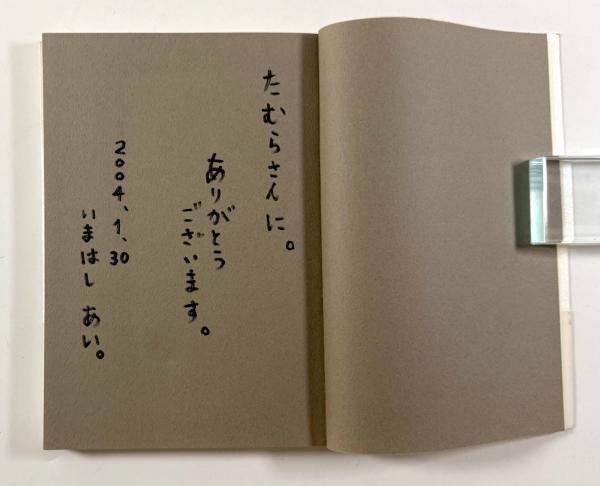 たむらさんに。
ありがとう
ございます。
2004、1、30
いまはし あい。